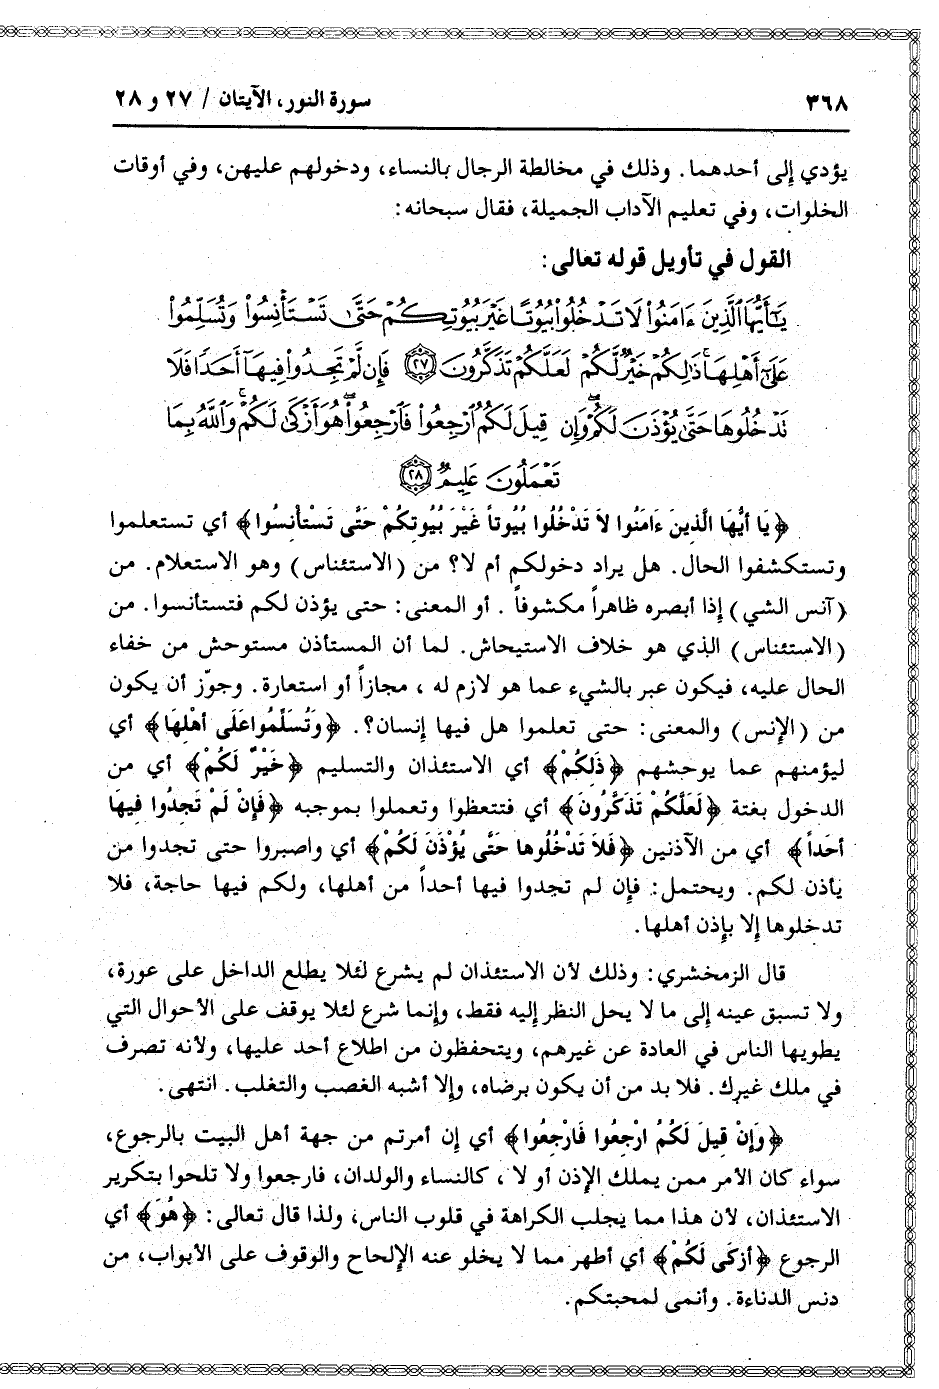 ٣٦٨ سورة النور، الآيتان / ٢٧ و ٢٨
يؤدي إلى أحدهما. وذلك في مخالطة الرجال بالنساء، ودخولهم عليهن، وفي أوقات
الخلوات، وفي تعليم الآداب الجميلة، فقال سبحانه:
القول في تأويل قوله تعالى:
يَٰٓأَيُّهَا ٱلَّذِينَ ءَامَنُوا۟ لَا تَدْخُلُوا۟ بُيُوتًا غَيْرَ بُيُوتِكُمْ حَتَّىٰ تَسْتَأْنِسُوا۟ وَتُسَلِّمُوا۟
عَلَىٰٓ أَهْلِهَا ۚ ذَٰلِكُمْ خَيْرٌ لَّكُمْ لَعَلَّكُمْ تَذَكَّرُونَ ﴿٢٧﴾ فَإِن لَّمْ تَجِدُوا۟ فِيهَآ أَحَدًا فَلَا
تَدْخُلُوهَا حَتَّىٰ يُؤْذَنَ لَكُمْ ۖ وَإِن قِيلَ لَكُمُ ٱرْجِعُوا۟ فَٱرْجِعُوا۟ ۖ هُوَ أَزْكَىٰ لَكُمْ ۚ وَٱللَّهُ بِمَا
تَعْمَلُونَ عَلِيمٌ ﴿٢٨﴾
﴿يَا أَيُّهَا الَّذِينَ ءَامَنُوا لاَ تَدْخُلُوا بُيُوتاً غَيْرَ بُيُوتِكُمْ حَتَّى تَسْتَأْنِسُوا﴾ أي تستعلموا
وتستكشفوا الحال. هل يراد دخولكم أم لا؟ من (الاستئناس) وهو الاستعلام. من
(آنس الشي) إذا أبصره ظاهراً مكشوفاً. أو المعنى: حتى يؤذن لكم فتستأنسوا. من
(الاستئناس) الذي هو خلاف الاستيحاش. لما أن المستأذن مستوحش من خفاء
الحال عليه، فيكون عبر بالشيء عما هو لازم له، مجازاً أو استعارة. وجوّز أن يكون
من (الإنس) والمعنى: حتى تعلموا هل فيها إنسان؟. ﴿وَتُسَلِّمُوا عَلَى أَهْلِهَا﴾ أي
ليؤمنهم عما يوحشهم ﴿ذَلِكُمْ﴾ أي الاستئذان والتسليم ﴿خَيْرٌ لَكُمْ﴾ أي من
الدخول بغتة ﴿لَعَلَّكُمْ تَذَكَّرُونَ﴾ أي فتتعظوا وتعملوا بموجبه ﴿فَإِنْ لَمْ تَجِدُوا فِيهَا
أَحَداً﴾ أي من الآذنين ﴿فَلاَ تَدْخُلُوها حَتَّى يُؤْذَنَ لَكُمْ﴾ أي واصبروا حتى تجدوا من
يأذن لكم. ويحتمل: فإن لم تجدوا فيها أحداً من أهلها، ولكم فيها حاجة، فلا
تدخلوها إلا بإذن أهلها.
قال الزمخشري: وذلك لأن الاستئذان لم يشرع لئلا يطلع الداخل على عورة،
ولا تسبق عينه إلى ما لا يحل النظر إليه فقط، وإنما شرع لئلا يوقف على الأحوال التي
يطويها الناس في العادة عن غيرهم، ويتحفظون من اطلاع أحد عليها، ولأنه تصرف
في ملك غيرك. فلا بد من أن يكون برضاه، وإلا أشبه الغصب والتغلب. انتهى.
﴿وَإِنْ قِيلَ لَكُمُ ارْجِعُوا فَارْجِعُوا﴾ أي إن أمرتم من جهة أهل البيت بالرجوع،
سواء كان الأمر ممن يملك الإذن أو لا، كالنساء والولدان، فارجعوا ولا تلحوا بتكرير
الاستئذان، لأن هذا مما يجلب الكراهة في قلوب الناس، ولذا قال تعالى: ﴿هُوَ﴾ أي
الرجوع ﴿أَزْكَى لَكُمْ﴾ أي أطهر مما لا يخلو عنه الإلحاح والوقوف على الأبواب، من
دنس الدناءة. وأنمى لمحبتكم.